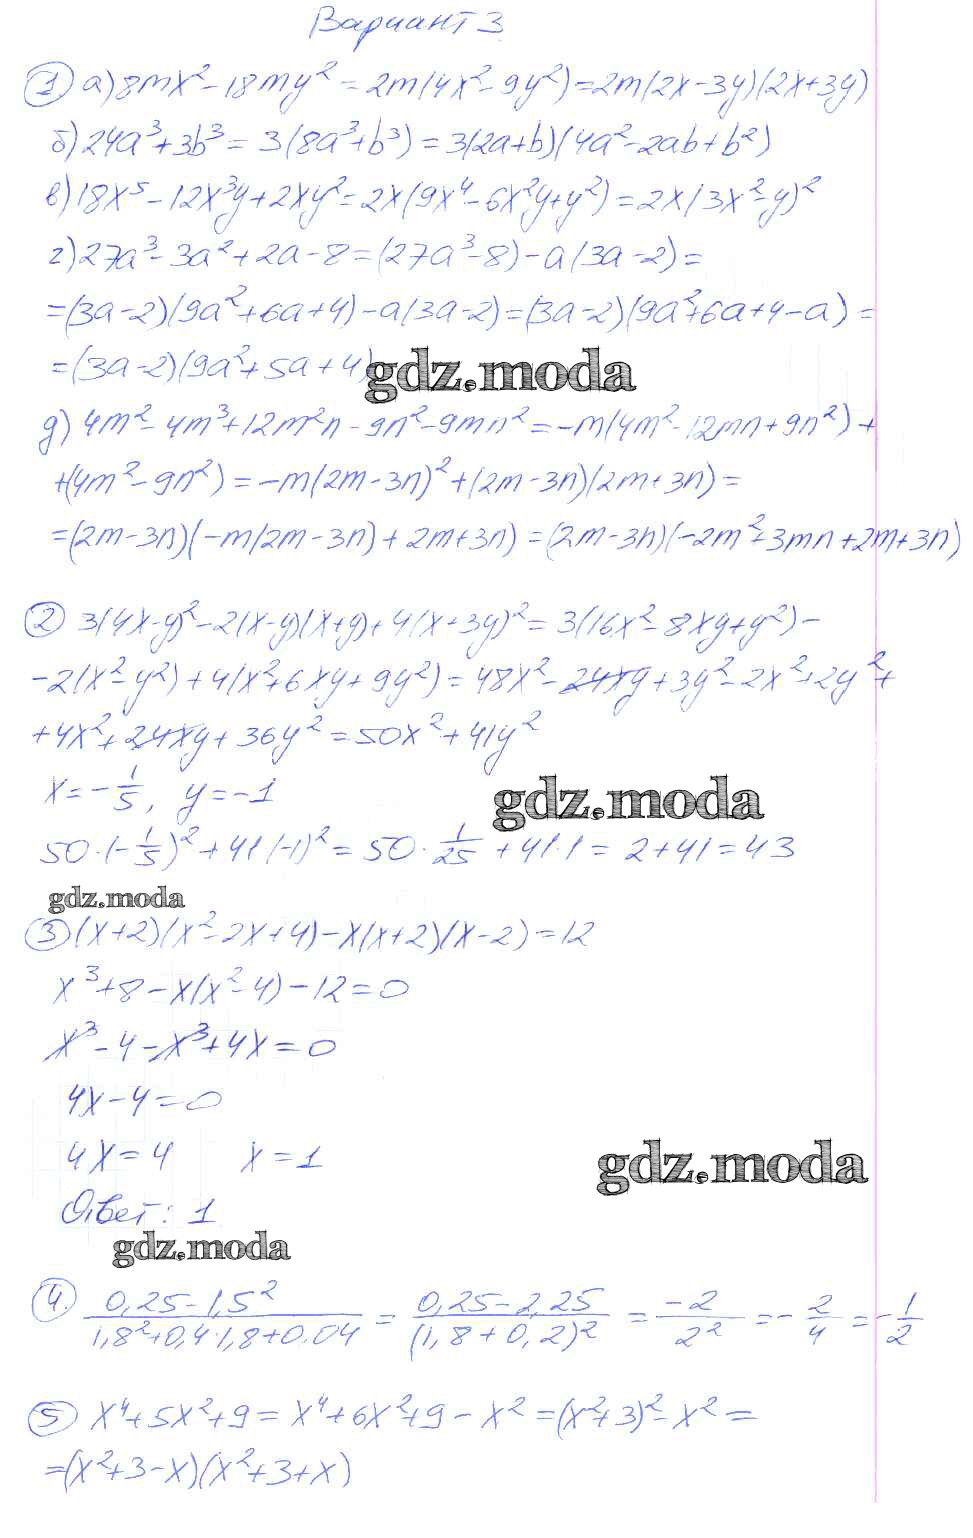 Вариант 3
① а) 8mx² - 18my² = 2m(4x² - 9y²) = 2m(2x - 3y)(2x + 3y)
б) 24a³ + 3b³ = 3(8a³ + b³) = 3(2a + b)(4a² - 2ab + b²)
в) 18x⁵ - 12x³y + 2xy² = 2x(9x⁴ - 6x²y + y²) = 2x(3x² - y)²
г) 27a³ - 3a² + 2a - 8 = (27a³ - 8) - a(3a - 2) =
= (3a - 2)(9a² + 6a + 4) - a(3a - 2) = (3a - 2)(9a² + 6a + 4 - a) =
= (3a - 2)(9a² + 5a + 4)
gdz.moda
д) 4m² - 4m³ + 12m²n - 9n² - 9mn² = -m(4m² - 12mn + 9n²) +
+ (4m² - 9n²) = -m(2m - 3n)² + (2m - 3n)(2m + 3n) =
= (2m - 3n)(-m(2m - 3n) + 2m + 3n) = (2m - 3n)(-2m² + 3mn + 2m + 3n)
② 3(4x - y)² - 2(x - y)(x + y) + 4(x + 3y)² = 3(16x² - 8xy + y²) -
- 2(x² - y²) + 4(x² + 6xy + 9y²) = 48x² - 24xy + 3y² - 2x² + 2y² +
+ 4x² + 24xy + 36y² = 50x² + 41y²
x = -1/5, y = -1
gdz.moda
50 · (-1/5)² + 41(-1)² = 50 · 1/25 + 41 · 1 = 2 + 41 = 43
gdz.moda
③ (x + 2)(x² - 2x + 4) - x(x + 2)(x - 2) = 12
x³ + 8 - x(x² - 4) - 12 = 0
x³ - 4 - x³ + 4x = 0
4x - 4 = 0
4x = 4 x = 1
gdz.moda
Ответ: 1
gdz.moda
④ (0,25 - 1,5²)/(1,8² + 0,4 · 1,8 + 0,04) = (0,25 - 2,25)/(1,8 + 0,2)² = -2/2² = -2/4 = -1/2
⑤ x⁴ + 5x² + 9 = x⁴ + 6x² + 9 - x² = (x² + 3)² - x² =
= (x² + 3 - x)(x² + 3 + x)